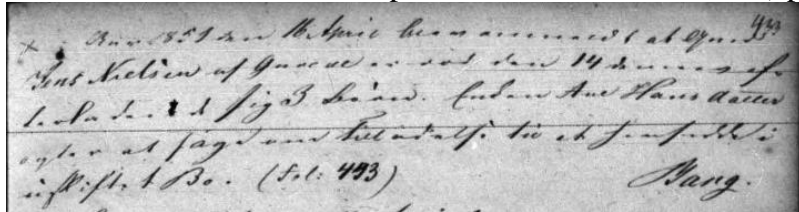 433
Aar 1851 den 16 April blev anmeldt at Gmd
Jens Nielsen af er død den 14 dennes ef-
terladende sig 3 Børn. Enken Ane Hansdatter
agter at søge om Tilladelse til at hensidde i
uskiftet Bo. (Fol: 433) Bang.